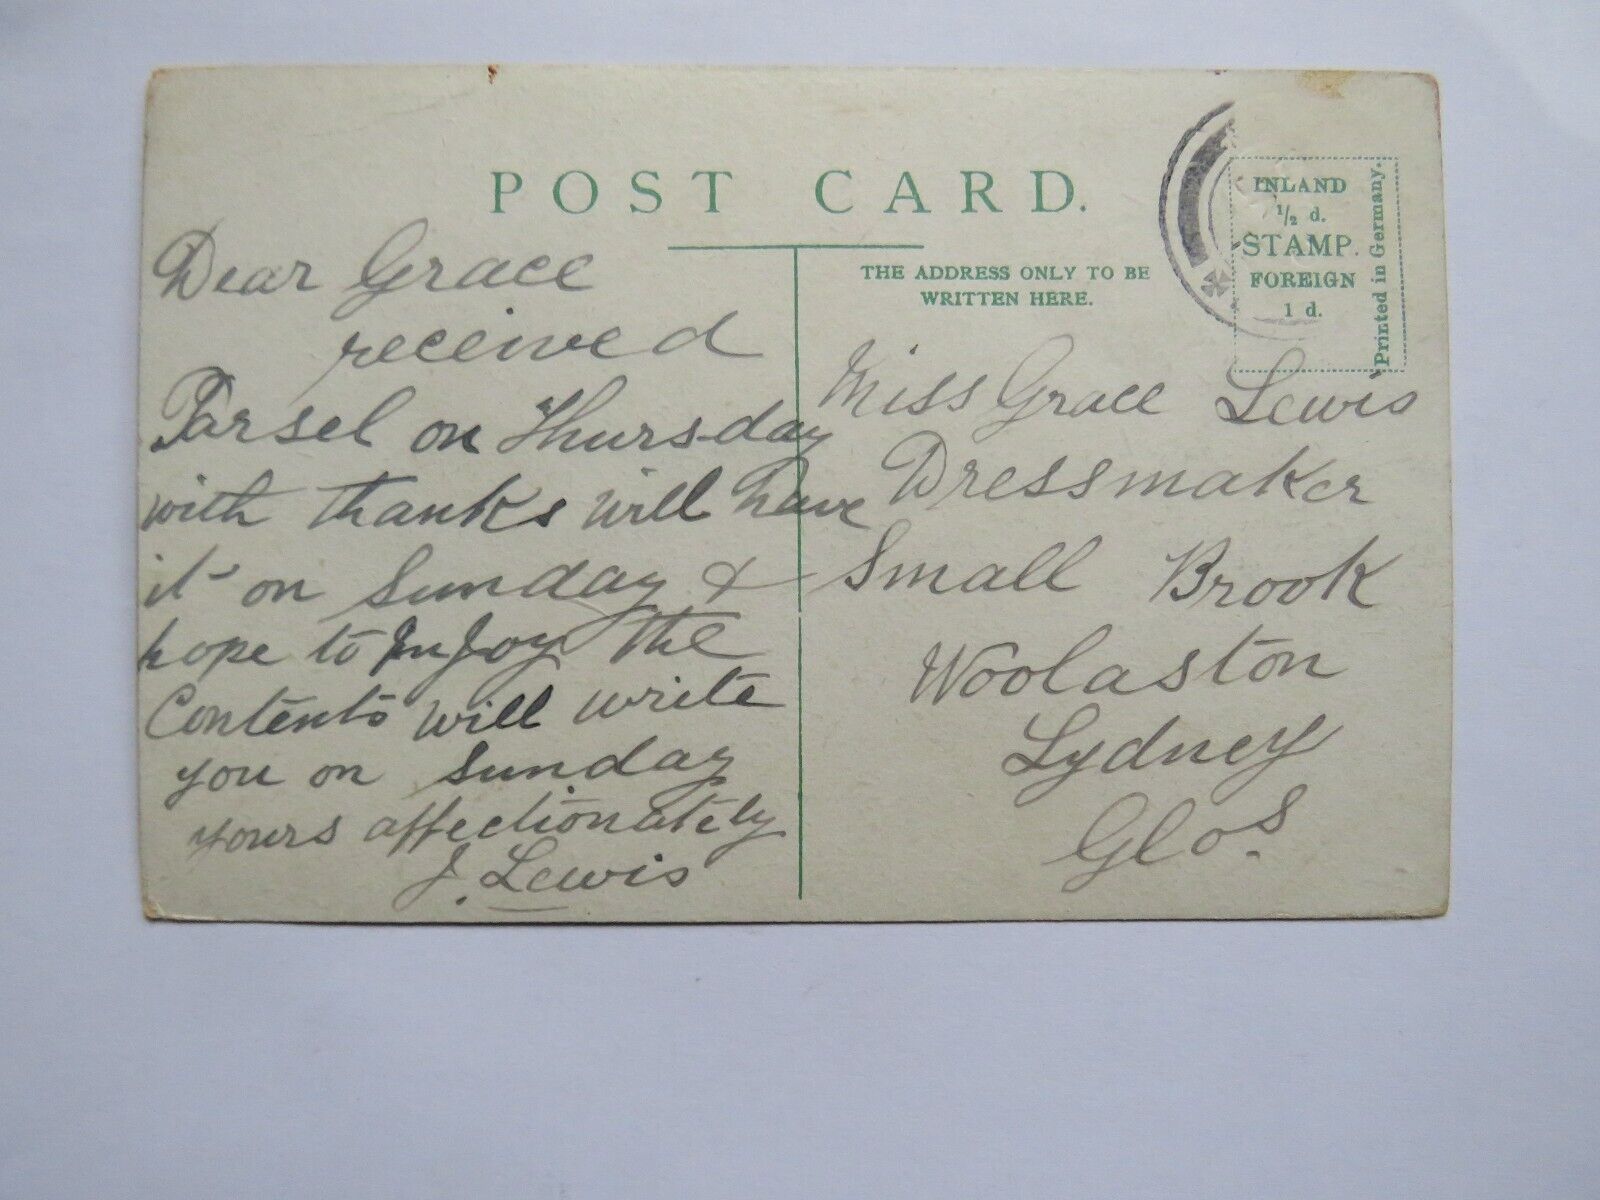 POST CARD.
THE ADDRESS ONLY TO BE
WRITTEN HERE.
INLAND
1/2 d.
STAMP.
FOREIGN
1 d.
Printed in Germany.
Dear Grace
received
Parsel on Thursday
with thanks will have
it on Sunday &
hope to InJoy the
Contents will write
you on Sunday
yours affectionately
J. Lewis
Miss Grace Lewis
Dressmaker
Small Brook
Woolaston
Lydney
Glos.